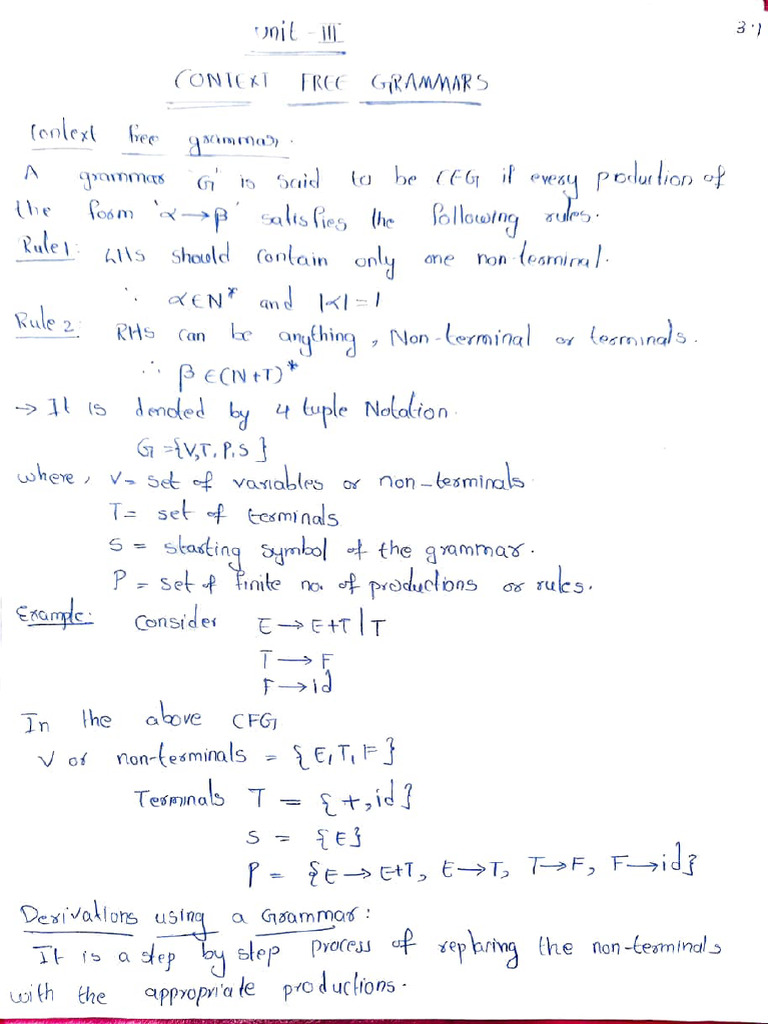 Unit - III
3.1
CONTEXT FREE GRAMMARS
Context free grammar.
A grammar 'G' is said to be CFG if every production of
the form 'α→β' satisfies the following rules.
Rule 1: LHS should contain only one non-terminal.
∴ α∈N* and |α|=1
Rule 2: RHS can be anything, Non-terminal or terminals.
∴ β∈(N+T)*
→ It is denoted by 4 tuple Notation.
G={V,T,P,S}
where, V= set of variables or non-terminals
T= set of terminals
S = starting symbol of the grammar.
P = set of finite no. of productions or rules.
Example: Consider E→E+T|T
T→F
F→id
In the above CFG
V or non-terminals = {E,T,F}
Terminals T = {+,id}
S = {E}
P = {E→E+T, E→T, T→F, F→id}
Derivations using a Grammar:
It is a step by step process of replacing the non-terminals
with the appropriate productions.